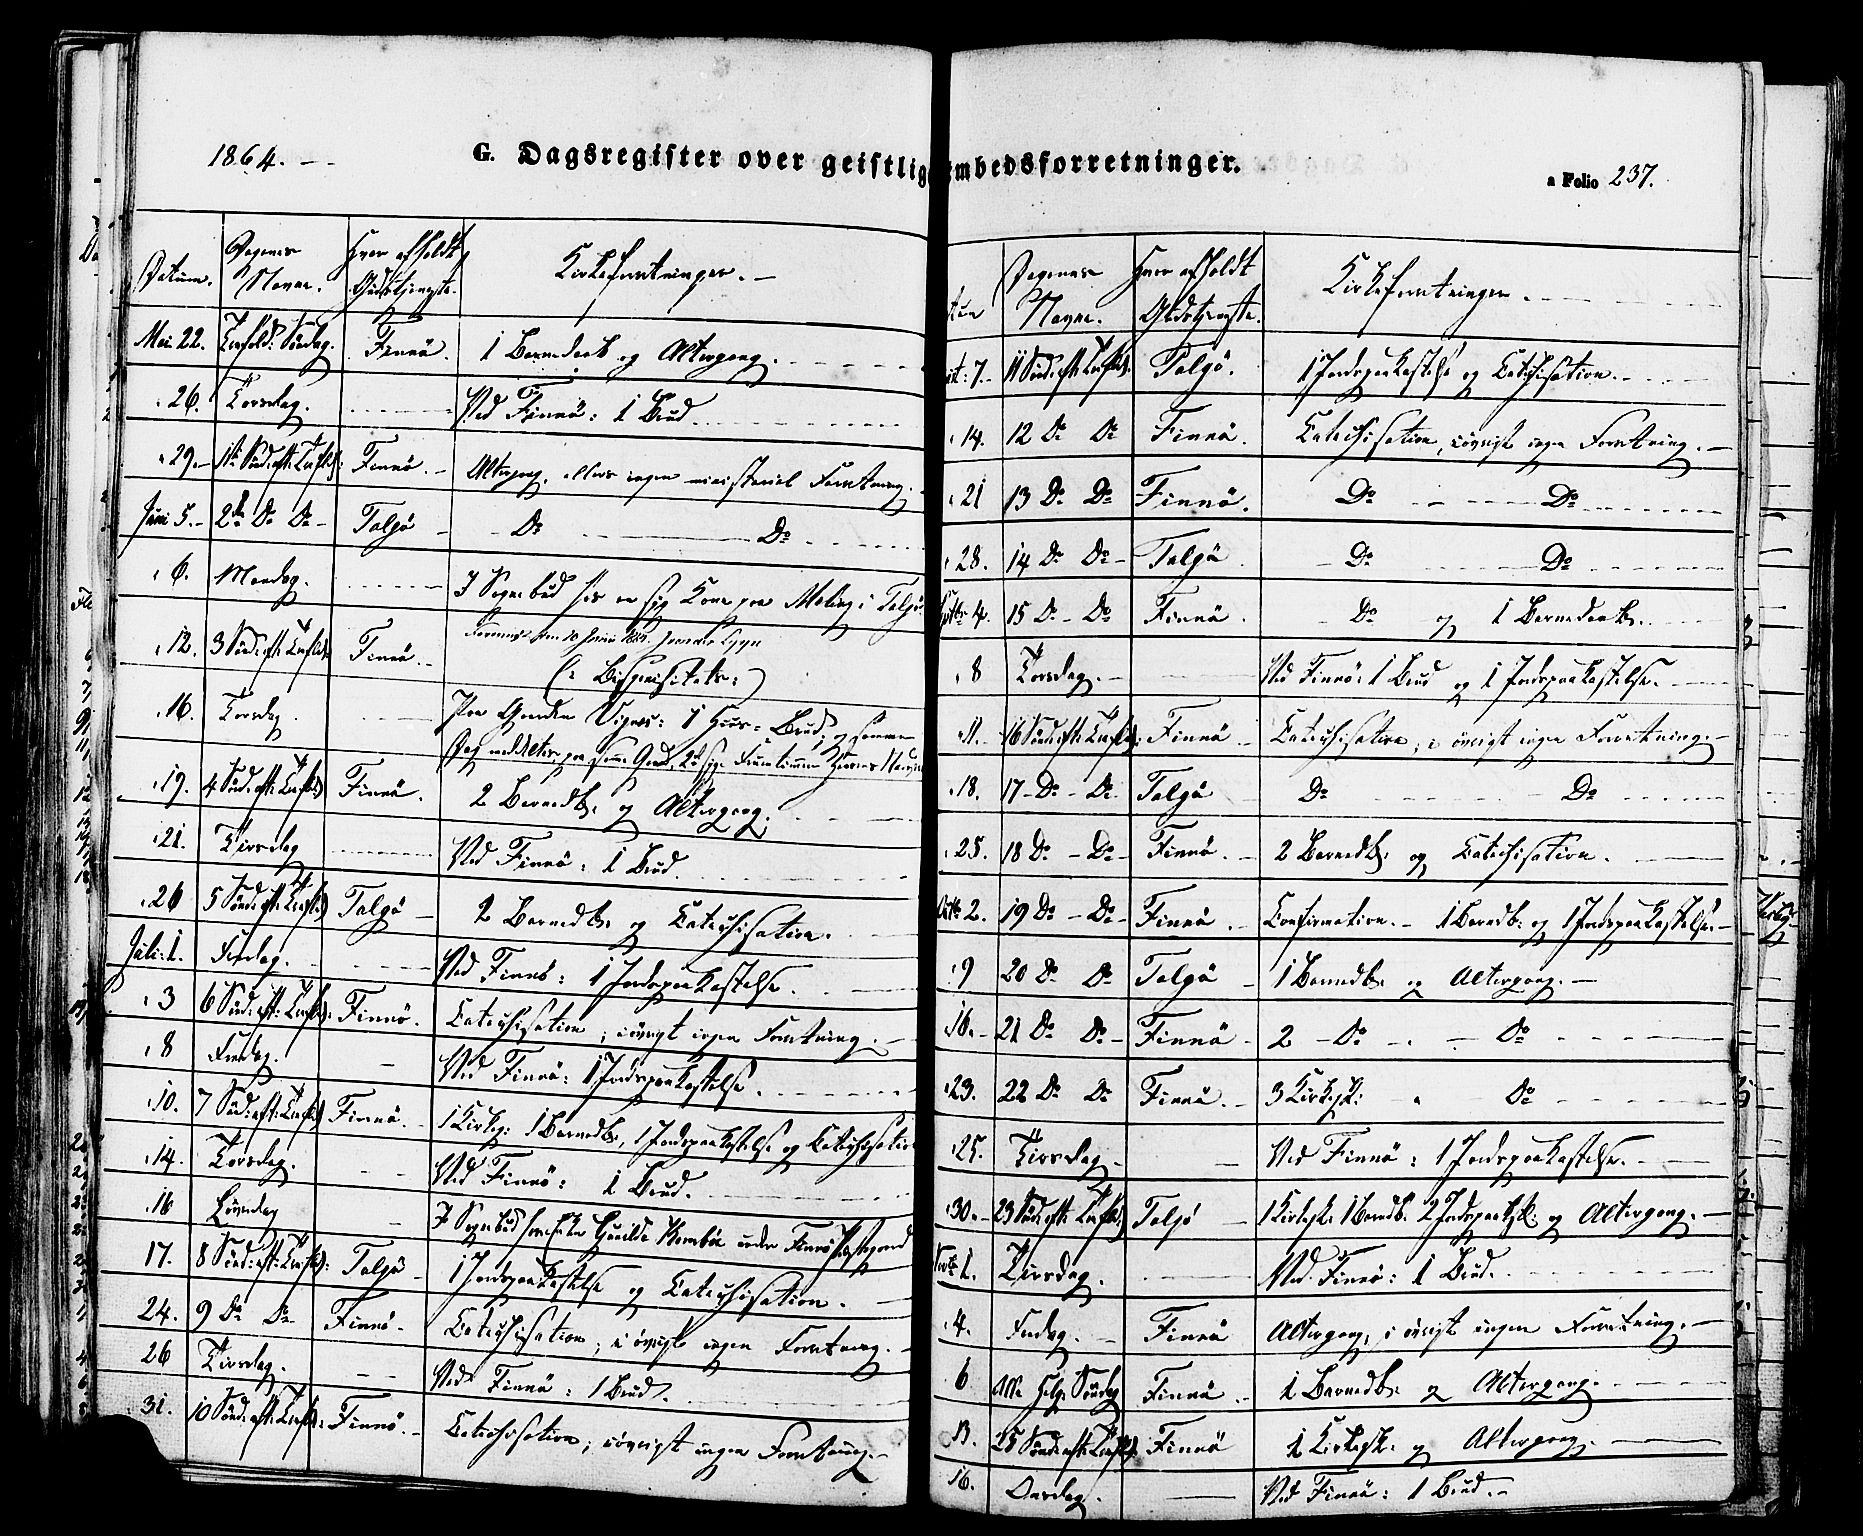 1864.
G. Dagsregister over geistlig
Datum. Dagenes Navne. Hvor afholdt Gudstjeneste. Kirkeforretninger.
Mai 22. Trefold: Søndag. Finnö. 1 Barnedaab og Altergang.
26. Torsdag. Ved Finnö: 1 Brud.
29. 1ste Sönd: efter Trefold: Finnö. Altergang, ellers ingen ministeriel Forretning.
Juni 5. 2den Do Do Talgö Do Do
6. Mandag. I Sognebud hos en syg Kone paa Meling i Talgö.
12. 3 Sönd: efter Trefold: Finnö.
16. Torsdag. Paa Gaarden Vignes: 1 Huus-Brud; og samme
19. 4 Sönd: efter Trefold: Finnö. 2 Barnedb: og Altergang.
21. Tirsdag Ved Finnö: 1 Brud.
26 5 Sönd: efter Trefold: Talgö 2 Barnedb: og Catechisation.
Juli: 1. Fredag. Ved Finnö: 1 Jordspaakastelse.
3 6 Sönd: efter Trefold: Finnö. Catechisation; iövrigt ingen Forretning.
8 Fredag. Ved Finnö: 1 Jordspaakastelse.
10. 7 Sönd: efter Trefold: Finnö. 1 Kirkeg: 1 Barnedb:, 1 Jordspaakastelse og Catechisation
14. Torsdag. Ved Finnö: 1 Brud.
16 Löverdag I Sognebud
17. 8 Sönd: efter Trefold: Talgö 1 Jordspaakastelse og Catechisation.
24. 9 Do Do Finnö. Catechisation; i övrigt ingen Forretning.
26 Tirsdag. Ved Finnö: 1 Brud.
31. 10 Sönd: efter Trefold: Finnö. Catechisation; iövrigt ingen Forretning.
embedsforretninger.
a Folio 237.
Dagenes Navne. Hvor afholdt Gudstjeneste. Kirkeforretninger.
7. 11 Sönd: efter Trefold: Talgö. 1 Jordspaakastelse og Catechisation.
14. 12 Do Do Finnö. Catechisation, iövrigt ingen Forretning.
21 13 Do Do Finnö. Do Do
28. 14 Do Do Talgö Do Do
Septbr 4. 15 Do Do Finnö Do og 1 Barnedaab.
8 Torsdag. Ved Finnö: 1 Brud og 1 Jordspaakastelse.
11. 16 Sönd: efter Trefold: Finnö Catechisation; i övrigt ingen Forretning.
18. 17 Do Do Talgö Do Do
25. 18 Do Do Finnö. 2 Barnedb: og Catechisation.
Octbr 2. 19 Do Do Finnö. Confirmation. 1 Barnedb: og 1 Jordspaakastelse.
9 20 Do Do Talgö 1 Barnedb: og Altergang.
16. 21 Do Do Finnö 2 Do Do
23. 22 Do Do Finnö. 3 Kirkegk: Do
25. Tirsdag Ved Finnö: 1 Jordspaakastelse.
30. 23 Sönd: efter Trefold: Talgö 1 Kirkegk: 1 Barnedb: 2 Jordspaakstl: og Altergang.
Novbr 1. Tirsdag. Ved Finnö: 1 Brud.
4. Fredag. Finnö Altergang, i övrigt ingen Forretning.
6 Alle Helg: Söndag Finnö 1 Barnedb: og Altergang.
13. 25 Sönd: efter Trefold: Finnö 1 Kirkegk: og Altergang.
16. Onsdag. Ved Finnö: 1 Brud.